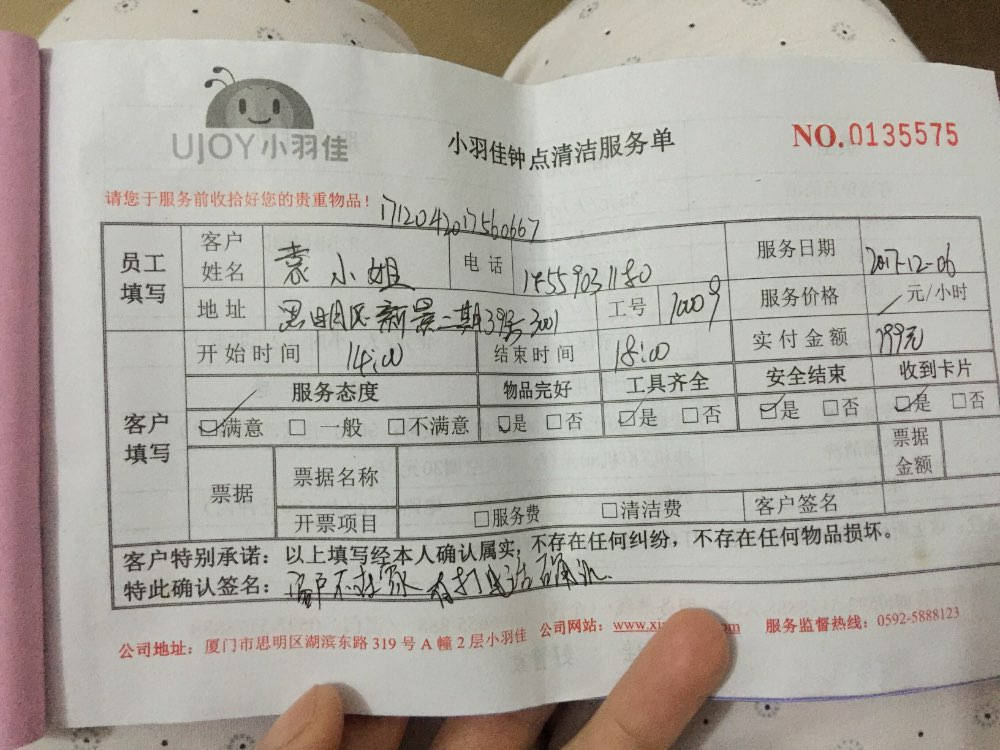 UJOY小羽佳
小羽佳钟点清洁服务单
NO.0135575
请您于服务前收拾好您的贵重物品！
1712042017560667
员工填写 客户姓名 袁小姐 电话 服务日期 2017-12-06
地址 思明区新景二期39号3001 工号 10009 服务价格 元/小时
开始时间 14:00 结束时间 18:00 实付金额 199元
客户填写 服务态度 物品完好 工具齐全 安全结束 收到卡片
☑满意 □ 一般 □不满意 ☑是 □否 ☑是 □否 ☑是 □否 ☑是 □否
票据 票据名称 票据金额
开票项目 □服务费 □清洁费 客户签名
客户特别承诺：以上填写经本人确认属实，不存在任何纠纷，不存在任何物品损坏。
特此确认签名：客户不在家 有打电话
公司地址：厦门市思明区湖滨东路 319 号 A 幢 2 层小羽佳 公司网站：www.xi 服务监督热线：0592-5888123